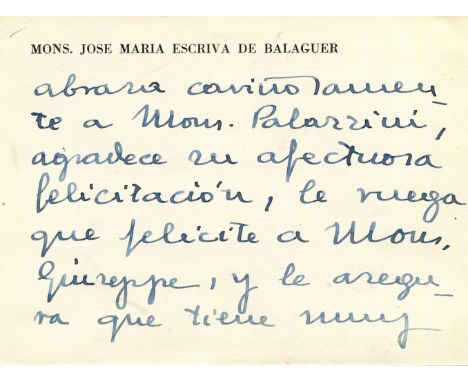 MONS. JOSE MARIA ESCRIVA DE BALAGUER
abraza cariñosamen-
te a Mons. Palazzini,
agradece su afectuosa
felicitación, le ruega
que felicite a Mons.
Giuseppe, y le asegu-
ra que tiene muy